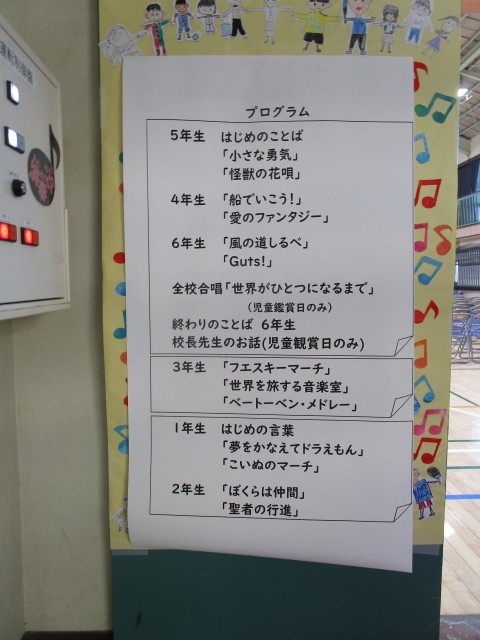 プログラム
5年生 はじめのことば
「小さな勇気」
「怪獣の花唄」
4年生 「船でいこう!」
「愛のファンタジー」
6年生 「風の道しるべ」
「Guts!」
全校合唱「世界がひとつになるまで」
(児童鑑賞日のみ)
終わりのことば 6年生
校長先生のお話(児童観賞日のみ)
3年生 「フエスキーマーチ」
「世界を旅する音楽室」
「ベートーベン・メドレー」
1年生 はじめの言葉
「夢をかなえてドラえもん」
「こいぬのマーチ」
2年生 「ぼくらは仲間」
「聖者の行進」